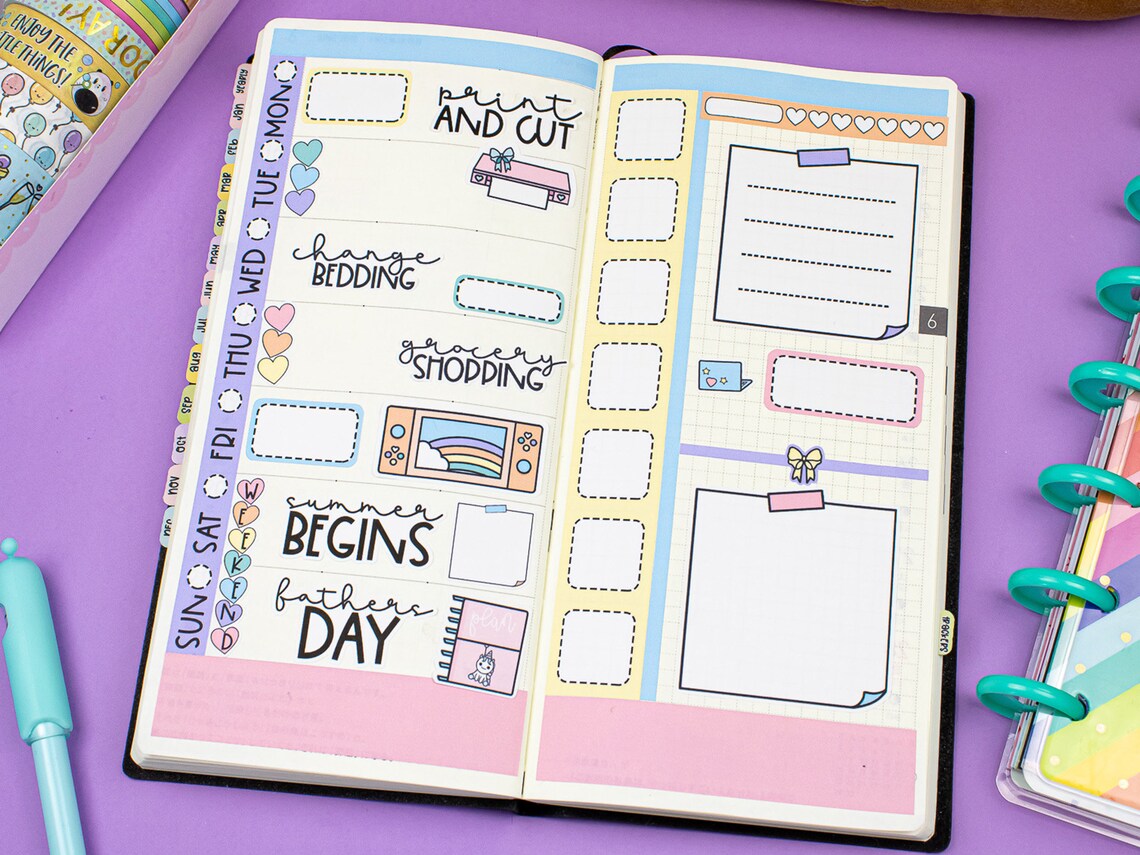 ENJOY THE
LITTLE THINGS!
ORAY!
YEARLY
Jan
FEB
MAR
APR
MAY
Jun
JUL
AUG
SEP
OCT
NOV
DEC
MON
print
AND CUT
TUE
WED
change
BEDDING
THU
grocery
SHOPPING
FRI
SAT
WEEKEND
summer
BEGINS
SUN
fathers
DAY
plan
6